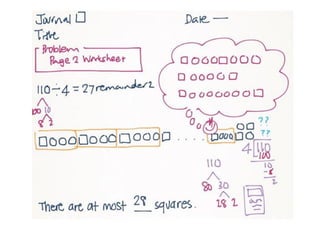 Journal Date
Title
Problem
Page 2 Worksheet
110 ÷ 4 = 27 remainder 2
100 10
8 2
??
??
4 110
100
10
8
2
110
80 30
28 2
There are at most 28 squares.